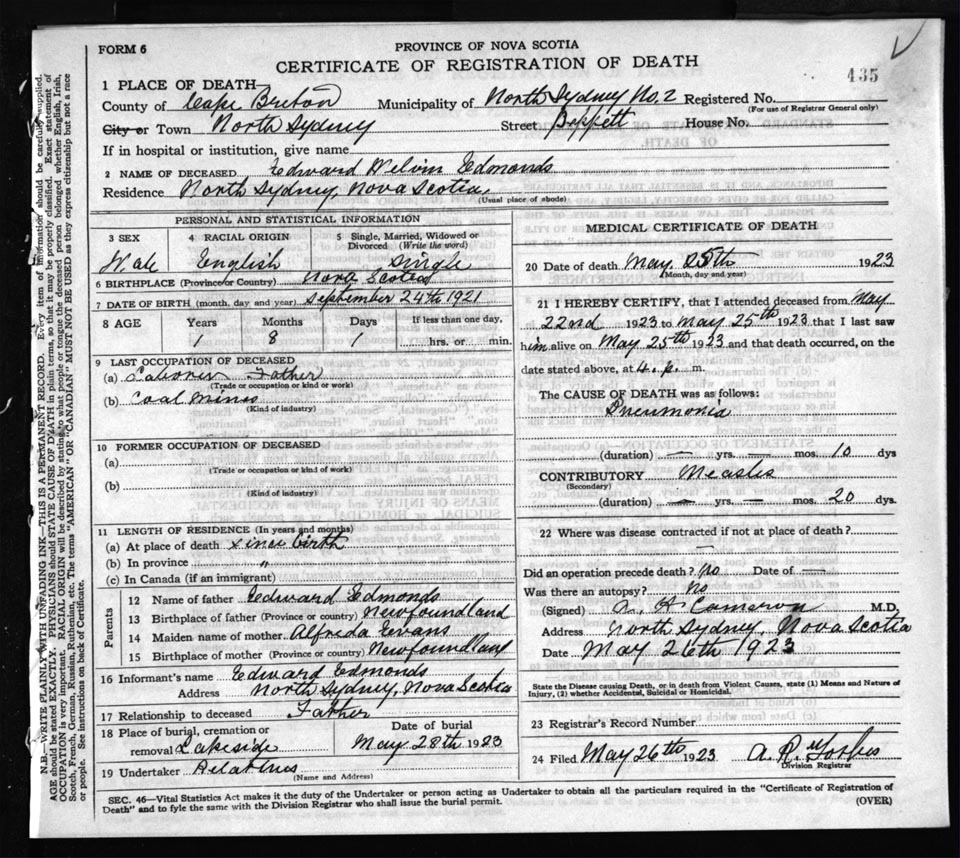 FORM 6
PROVINCE OF NOVA SCOTIA
CERTIFICATE OF REGISTRATION OF DEATH
435
1 PLACE OF DEATH
County of Cape Breton Municipality of North Sydney No. 2 Registered No.
(For use of Registrar General only)
City or Town North Sydney Street House No.
If in hospital or institution, give name
2 NAME OF DECEASED Edward Edmonds
Residence North Sydney, Nova Scotia,
(Usual place of abode)
PERSONAL AND STATISTICAL INFORMATION
3 SEX 4 RACIAL ORIGIN 5 Single, Married, Widowed or Divorced (Write the word)
Male English Single
6 BIRTHPLACE (Province or Country) Nova Scotia
7 DATE OF BIRTH (month, day and year) September 24th 1921
8 AGE Years Months Days If less than one day,
1 8 1 hrs. or min.
9 LAST OCCUPATION OF DECEASED
(a) Laborer Father
(Trade or occupation or kind of work)
(b) Coal Mines
(Kind of industry)
10 FORMER OCCUPATION OF DECEASED
(a)
(Trade or occupation or kind of work)
(b)
(Kind of industry)
11 LENGTH OF RESIDENCE (In years and months)
(a) At place of death since birth
(b) In province "
(c) In Canada (if an immigrant)
Parents
12 Name of father Edward Edmonds
13 Birthplace of father (Province or country) Newfoundland
14 Maiden name of mother Alfreda Evans
15 Birthplace of mother (Province or country) Newfoundland
16 Informant's name Edward Edmonds
Address North Sydney, Nova Scotia
17 Relationship to deceased Father
18 Place of burial, cremation or removal Lakeside Date of burial May 28th 1923
19 Undertaker Relatives
(Name and Address)
MEDICAL CERTIFICATE OF DEATH
20 Date of death May 25th 1923
(Month, day and year)
21 I HEREBY CERTIFY, that I attended deceased from May
22nd 1923 to May 25th 1923 that I last saw
him alive on May 25th 1923 and that death occurred, on the
date stated above, at 4. p. m.
The CAUSE OF DEATH was as follows:
Pneumonia
(duration) — yrs. — mos. 10 dys
CONTRIBUTORY Measles
(Secondary)
(duration) — yrs — mos. 20 dys.
22 Where was disease contracted if not at place of death?
—
Did an operation precede death? No Date of —
Was there an autopsy? No
(Signed) H Cameron M.D.
Address North Sydney, Nova Scotia
Date May 26th 1923
State the Disease causing Death, or in death from Violent Causes, state (1) Means and Nature of
Injury, (2) whether Accidental, Suicidal or Homicidal.
23 Registrar's Record Number
24 Filed May 26th 1923 A. R. Forbes
Division Registrar
SEC. 46—Vital Statistics Act makes it the duty of the Undertaker or person acting as Undertaker to obtain all the particulars required in the "Certificate of Registration of
Death" and to fyle the same with the Division Registrar who shall issue the burial permit.
(OVER)
N.B.—WRITE PLAINLY WITH UNFADING INK—THIS IS A PERMANENT RECORD. Every item of information should be carefully supplied.
AGE should be stated EXACTLY. PHYSICIANS should STATE CAUSE OF DEATH in plain terms, so that it may be properly classified. Exact statement of
OCCUPATION is very important. RACIAL ORIGIN will be described by stating to what people or tongue the deceased person belonged whether English, Irish,
Scotch, French, German, Russian, Ruthenian, etc. The terms "AMERICAN" OR "CANADIAN" MUST NOT BE USED as they express citizenship but not a race
or people. See instructions on back of Certificate.